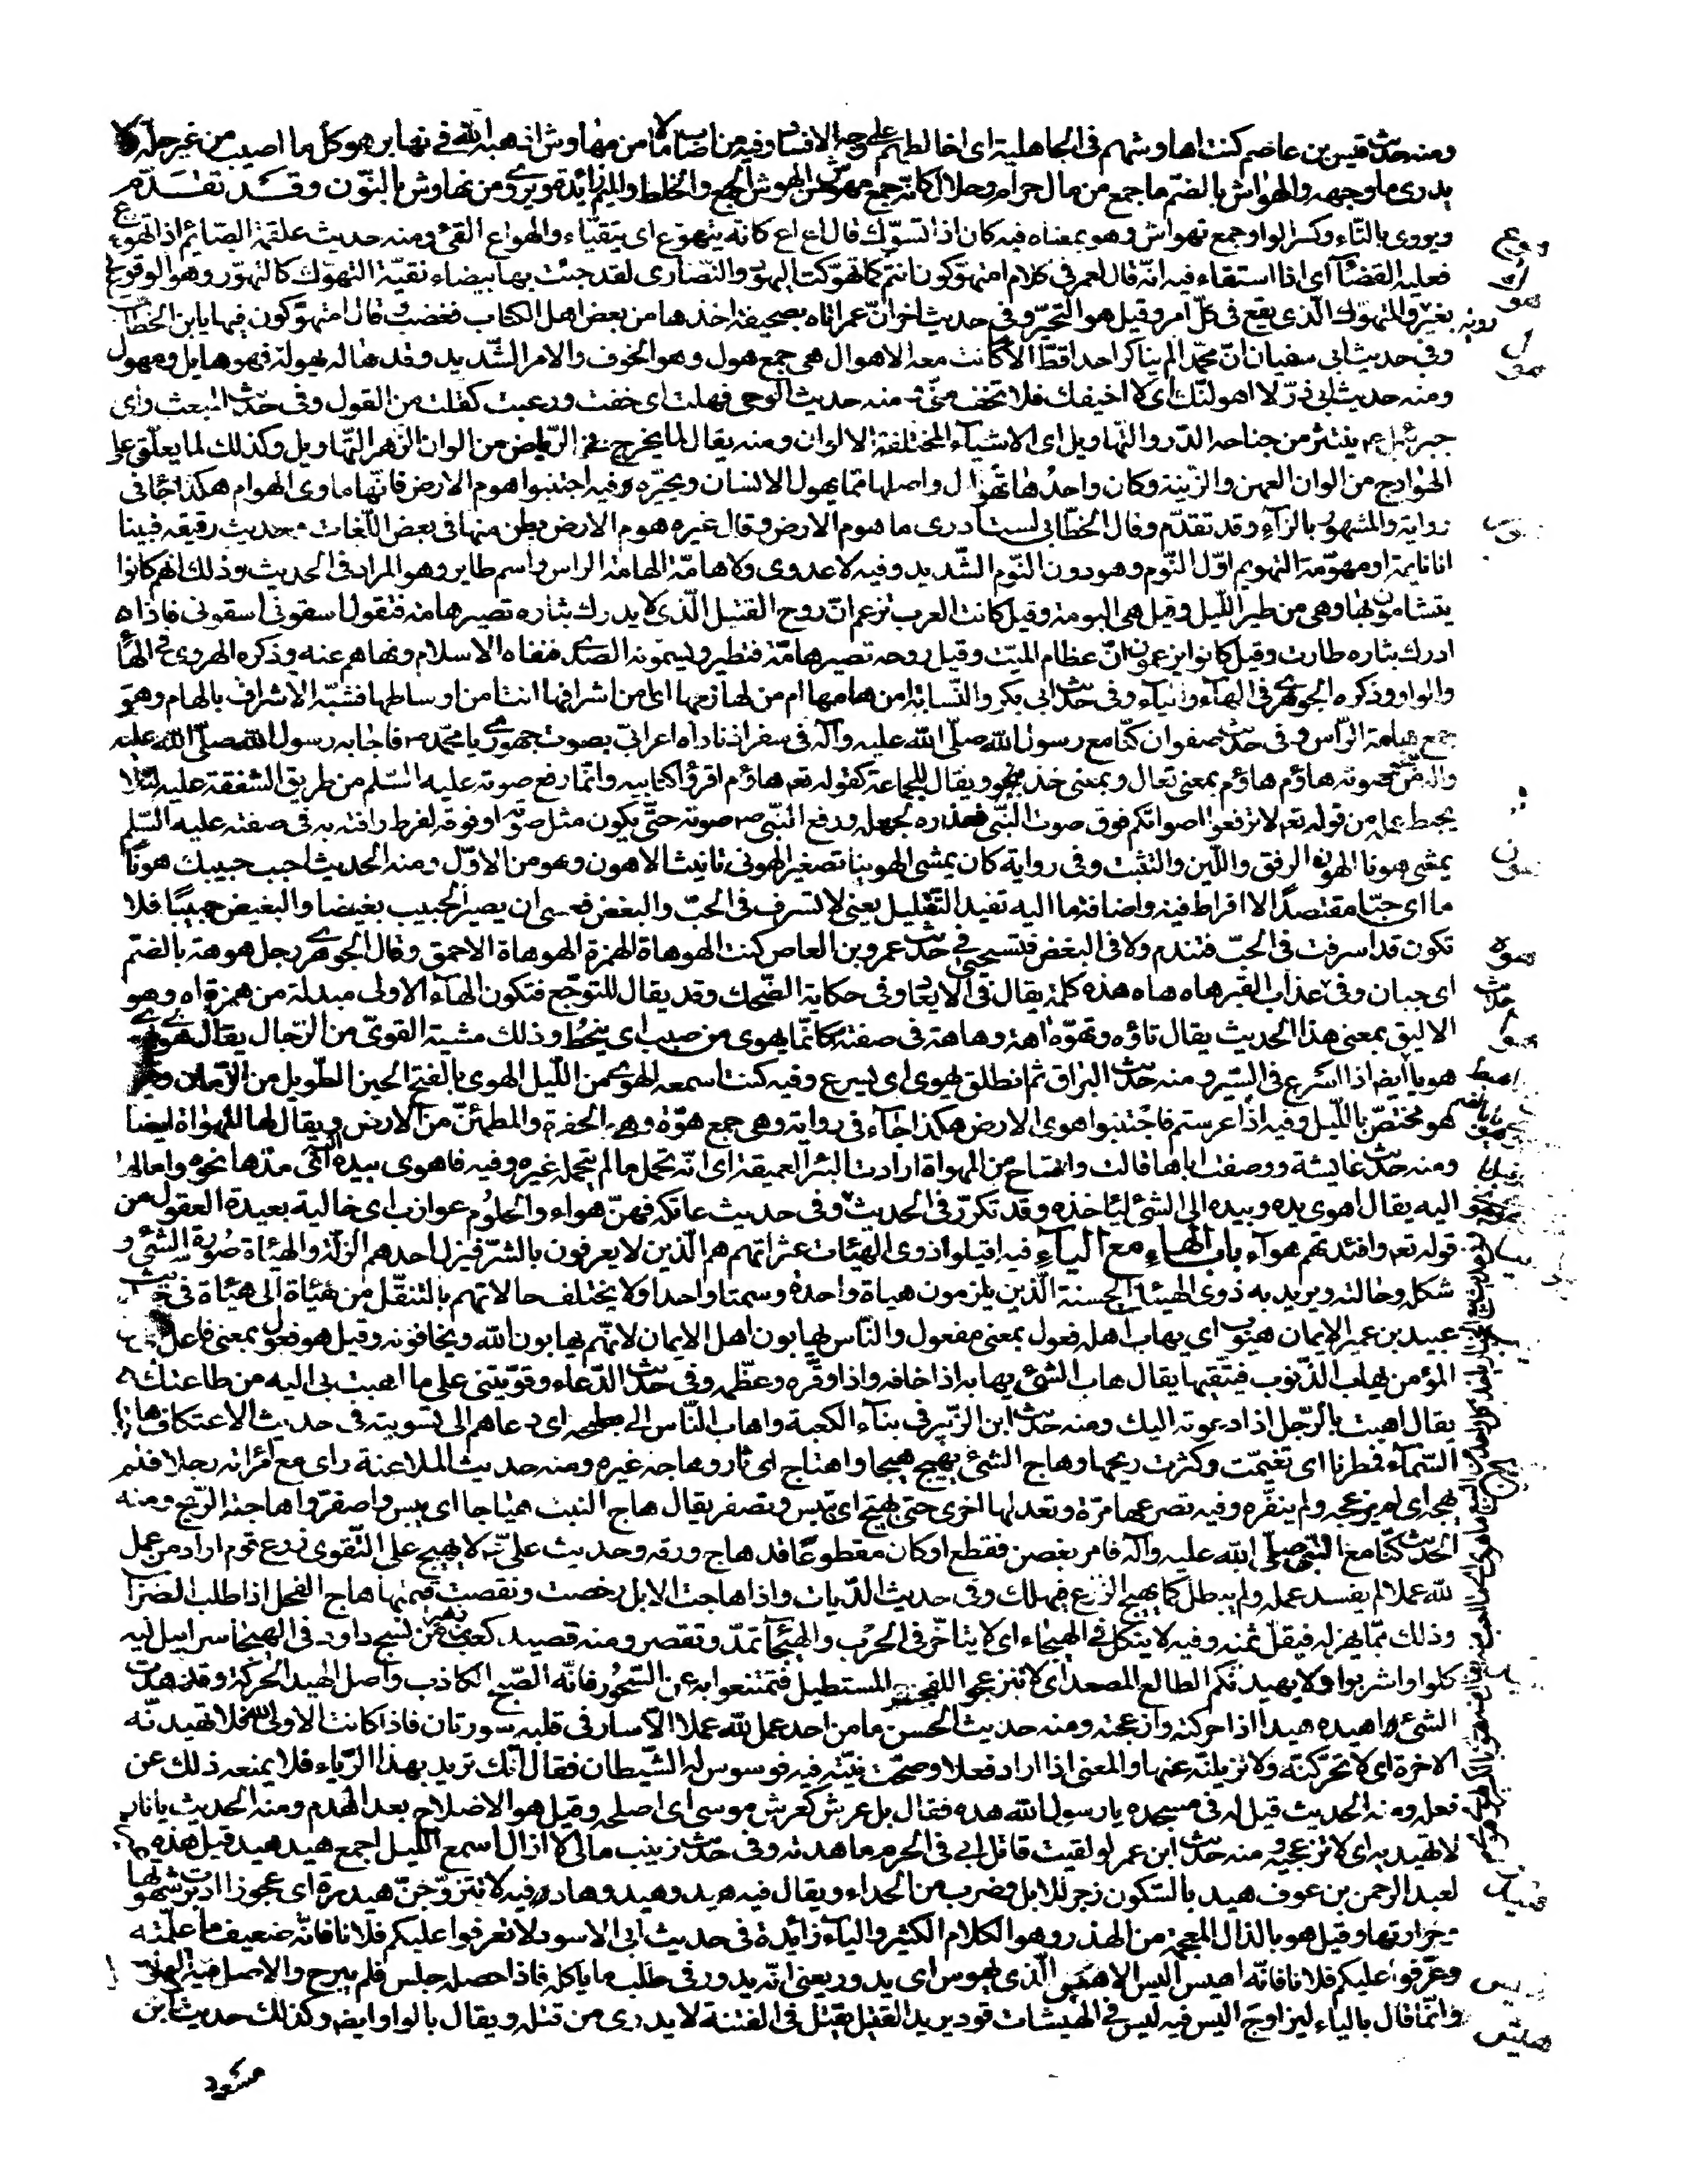 ومنه حديث قيس بن عاصم كنت اهاوشهم فى الجاهلية اى اخالطهم على وجه الافساد وفيه من اصاب مالا من مهاوش اذهبه الله فى نهابر هو كل ما اصيب من غير حله ولا
يدرى ما وجهه والهواش بالضم ما جمع من مال حرام وحلال كانه جمع مهوش من الهوش الجمع والخلط والميم زائدة ويروى من نهاوش بالنون وقد تقدم
ويروى بالتاء وكسر الواو جمع تهواش وهو بمعناه فيه كان اذا تسوك قال اع اع كانه يتهوع اى يتقيا والهواع القئ ومنه حديث علقمة الصائم اذا تهوع
فعليه القضاء اى اذا استقاء فيه انه قال لعمر فى كلام امتهوكون انتم كما تهوكت اليهود والنصارى لقد جئت بها بيضاء نقية التهوك كالتهور وهو الوقوع
بغير روية والمتهوك الذى يقع فى كل امر وقيل هو التحير وفى حديث اخر ان عمر اتاه بصحيفة اخذها من بعض اهل الكتاب فغضب وقال امتهوكون فيها يابن الخطاب
وفى حديث ابى سفيان ان محمدا لم يناكر احدا قط الا كانت معه الاهوال هى جمع هول وهو الخوف والامر الشديد وقد هاله يهوله فهو هايل ومهول
ومنه حديث ابى ذر لا اهولنك اى لا اخيفك فلا تخف منى ومنه حديث الوحى فهلت اى خفت ورعبت كقلت من القول وفى حديث المبعث راى
جبرئيل ع ينتثر من جناحه الدر والتهاويل اى الاشياء المختلفة الالوان ومنه يقال لما يخرج فى الرياض من الوان الزهر التهاويل وكذلك لما يعلق على
الهوادج من الوان العهن والزينة وكان واحدها تهوال واصلها مما يهول الانسان ويحيره وفيه اجتنبوا هوم الارض فانها ماوى الهوام هكذا جاء فى
رواية والمشهور بالزاء وقد تقدم وقال الخطابى لست ادرى ما هوم الارض وقال غيره هوم الارض بطن منها فى بعض اللغات حديث رقيقه فبينا
انا نايمة او مهومة التهويم اول النوم وهو دون النوم الشديد وفيه لا عدوى ولا هامة الهامة الراس واسم طاير وهو المراد فى الحديث وذلك انهم كانوا
يتشامون بها وهى من طير الليل وقيل هى البومة وقيل كانت العرب تزعم ان روح القتيل الذى لا يدرك بثاره تصير هامة فتقول اسقونى اسقونى فاذا
ادرك بثاره طارت وقيل كانوا يزعمون ان عظام الميت وقيل روحه تصير هامة فتطير ويسمونه الصدى فنفاه الاسلام ونهاهم عنه وذكره الهروى فى الهاء
والواو وذكره الجوهرى فى الهاء والياء وفى حديث ابى بكر والنسابة امن هامها ام من لهازمها اى من اشرافها انت ام من اوساطها فشبه الاشراف بالهام وهو
جمع هامة الراس وفى حديث صفوان كنا مع رسول الله صلى الله عليه وآله فى سفر اذ ناداه اعرابى بصوت جهورى يا محمد ص فاجابه رسول الله صلى الله عليه
صوته هاؤم هاؤم بمعنى تعال وبمعنى خذ ويقال للجماعة كقوله تعه هاؤم اقرؤا كتابيه وانما رفع صوته عليه السلم من طريق الشفقة عليه لئلا
يحبط عمله من قوله تعه لا ترفعوا اصواتكم فوق صوت النبى فعذره لجهله ورفع النبى ص صوته حتى يكون مثل صوته او فوقه لفرط رافته به فى صفته عليه السلم
يمشى هونا الهون الرفق واللين والتثبت وفى رواية كان يمشى الهوينا تصغير الهونى تانيث الاهون وهو من الاول ومنه الحديث احبب حبيبك هونا
ما اى حبا مقتصدا لا افراط فيه واضافة ما اليه تفيد التقليل يعنى لا تسرف فى الحب والبغض فعسى ان يصير الحبيب بغيضا والبغيض حبيبا فلا
تكون قد اسرفت فى الحب فتندم ولا فى البغض فتستحيى فى حديث عمرو بن العاص كنت الهوهاة الهمزة الهوهاة الاحمق وقال الجوهرى رجل هوهة بالضم
اى جبان وفى عذاب القبر هاه هاه هذه كلمة يقال فى الايعاد وفى حكاية الضحك وقد يقال للتوجع فتكون الهاء الاولى مبدلة من همزة اه وهو
الاليق بمعنى هذا الحديث يقال تاوه وتهوه اهة وهاهة فى صفته كانما يهوى من صبب اى ينحط وذلك مشية القوى من الرجال يقال هوى يهوى
هويا ايضا اذا اسرع فى السير ومنه حديث البراق ثم انطلق يهوى اى يسرع وفيه كنت اسمعه الهوى من الليل الهوى بالفتح الحين الطويل من الزمان وقيل
هو مختص بالليل وفيه اذا عرستم فاجتنبوا هوى الارض هكذا جاء فى رواية وهى جمع هوة وهى الحفرة والمطمئن من الارض ويقال لها المهواة ايضا
ومنه حديث عايشة ووصفت اباها قالت وامتاح من المهواة ارادت البئر العميقة اى انه تحمل ما لم يتحمل غيره وفيه فاهوى بيده اى مدها نحوه وامالها
اليه يقال اهوى يده وبيده الى الشئ لياخذه وقد تكرر فى الحديث وفى حديث عاتكه فهن هواء والحلوم عوازب اى خالية بعيدة العقول من
قوله تعه وافئدتهم هواء باب الهاء مع الياء فيه اقيلوا ذوى الهيئات عثراتهم هم الذين لا يعرفون بالشر فيزل احدهم الزلة والهيئاة صورة الشئ و
شكله وحالته ويريد به ذوى الهيئة الحسنة الذين يلزمون هياة واحدة وسمتا واحدا ولا يختلف حالاتهم بالتنقل من هيئاة الى هيئاة فى حديث
عبيد بن عمير الايمان هيوب اى يهاب اهله فعول بمعنى مفعول والناس يهابون اهل الايمان لانهم يهابون الله ويخافونه وقيل هو فعول بمعنى فاعل
المؤمن يهاب الذنوب فيتقيها يقال هاب الشئ يهابه اذا خافه واذا وقره وعظمه وفى حديث الدعاء وقويتنى على ما اهبت بى اليه من طاعتك
يقال اهبت بالرجل اذا دعوته اليك ومنه حديث ابن الزبير فى بناء الكعبة واهاب الناس الى بطحه اى دعاهم الى تسويته فى حديث الاعتكاف هاجت
السماء فمطرنا اى تغيمت وكثرت ريحها وهاج الشئ يهيج هيجا واهتاج اى ثار وهاجه غيره ومنه حديث الملاعنة راى مع امراته رجلا فلم
يهجه اى لم يزعجه ولم ينفره وفيه تصرعها مرة وتعدلها اخرى حتى تهيج اى تيبس وتصفر يقال هاج النبت هياجا اى يبس واصفر واهاجته الريح ومنه
الحديث كنا مع النبى صلى الله عليه وآله فامر بغصن فقطع او كان مقطوعا قد هاج ورقه وحديث على ع لا يهيج على التقوى زرع قوم اراد من عمل
لله عملا لم يفسد عمله ولم يبطل كما يهيج الزرع فيهلك وفى حديث الديات واذا هاجت الابل رخصت ونقصت قيمتها هاج الفحل اذا طلب الضراب
وذلك مما يهزله فيقل ثمنه وفيه لا ينكل فى الهيجاء اى لا يتاخر فى الحرب والهيجاء تمد وتقصر ومنه قصيد كعب من نسج داود فى الهيجا سرابيل فيه
كلوا واشربوا ولا يهيدنكم الطالع المصعد اى لا تنزعجوا للفجر المستطيل فتمتنعوا به عن السحور فانه الصبح الكاذب واصل الهيد الحركة وقد هدت
الشئ اهيده هيدا اذا حركته وازعجته ومنه حديث الحسن ما من احد عمل لله عملا الا سار فى قلبه سورتان فاذا كانت الاولى لله فلا تهيدنه
الاخرة اى لا تحركنه ولا تزيلنه عنها والمعنى اذا اراد فعلا وصحت نيته فيه فوسوس له الشيطان فقال انك تريد بهذا الرياء فلا يمنعه ذلك عن
فعله ومنه الحديث قيل له فى مسجده يا رسول الله هده فقال بل عرش كعرش موسى اى اصلحه وقيل هو الاصلاح بعد الهدم ومنه الحديث يا نار
لا تهيديه اى لا تزعجيه ومنه حديث ابن عمر لو لقيت قاتل ابى فى الحرم ما هدته وفى حديث زينب مالى لا ازال اسمع الليل اجمع هيد هيد قيل هذه
لعبد الرحمن بن عوف هيد بالسكون زجر للابل وضرب من الحداء ويقال فيه هيد وهيد وهاد وفيه لا تتزوجن هيدرة اى عجوزا ادبرت شهوتها
وحرارتها وقيل هو بالذال المعجمة من الهذر وهو الكلام الكثير والياء زايدة فى حديث ابى الاسود لا تعرفوا عليكم فلانا فانه ضعيف ما علمته
وعرفوا عليكم فلانا فانه اهيس اليس الاهيس الذى يهوس اى يدور يعنى انه يدور فى طلب ما ياكله فاذا حصله جلس فلم يبرح والاصل فيه الواو
وانما قال بالياء ليزاوج اليس فيه ليس فى الهيشات قود يريد القتيل يقتل فى الفتنة لا يدرى من قتله ويقال بالواو ايضا وكذلك حديث ابن
مسعود
هوع
هوك
هول
هون
هوه
هيس
هيش